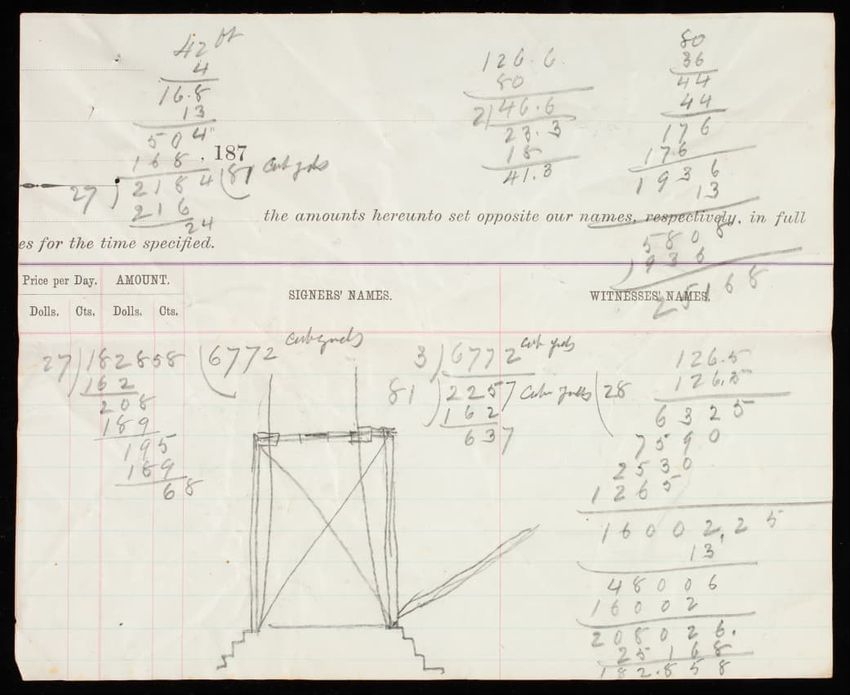 42 ft
4
16.8
13
504
168
27 ) 2184 ( 81 Cub yds
216
24
, 187
126.6
80
2) 46.6
23.3
18
41.3
80
36
44
44
176
176
1936
13
5808
936
25168
the amounts hereunto set opposite our names, respectively, in full
es for the time specified.
Price per Day. AMOUNT.
SIGNERS' NAMES.
WITNESSES' NAMES.
Dolls. Cts. Dolls. Cts.
27 ) 182858 ( 6772 cub yds
162
208
189
195
189
68
3 ) 6772 cub yds
81 ) 2257 Cub yds ( 28
162
637
126.5
126.5
6325
7590
2530
1265
16002,25
13
48006
16002
208026.
25168
182.858